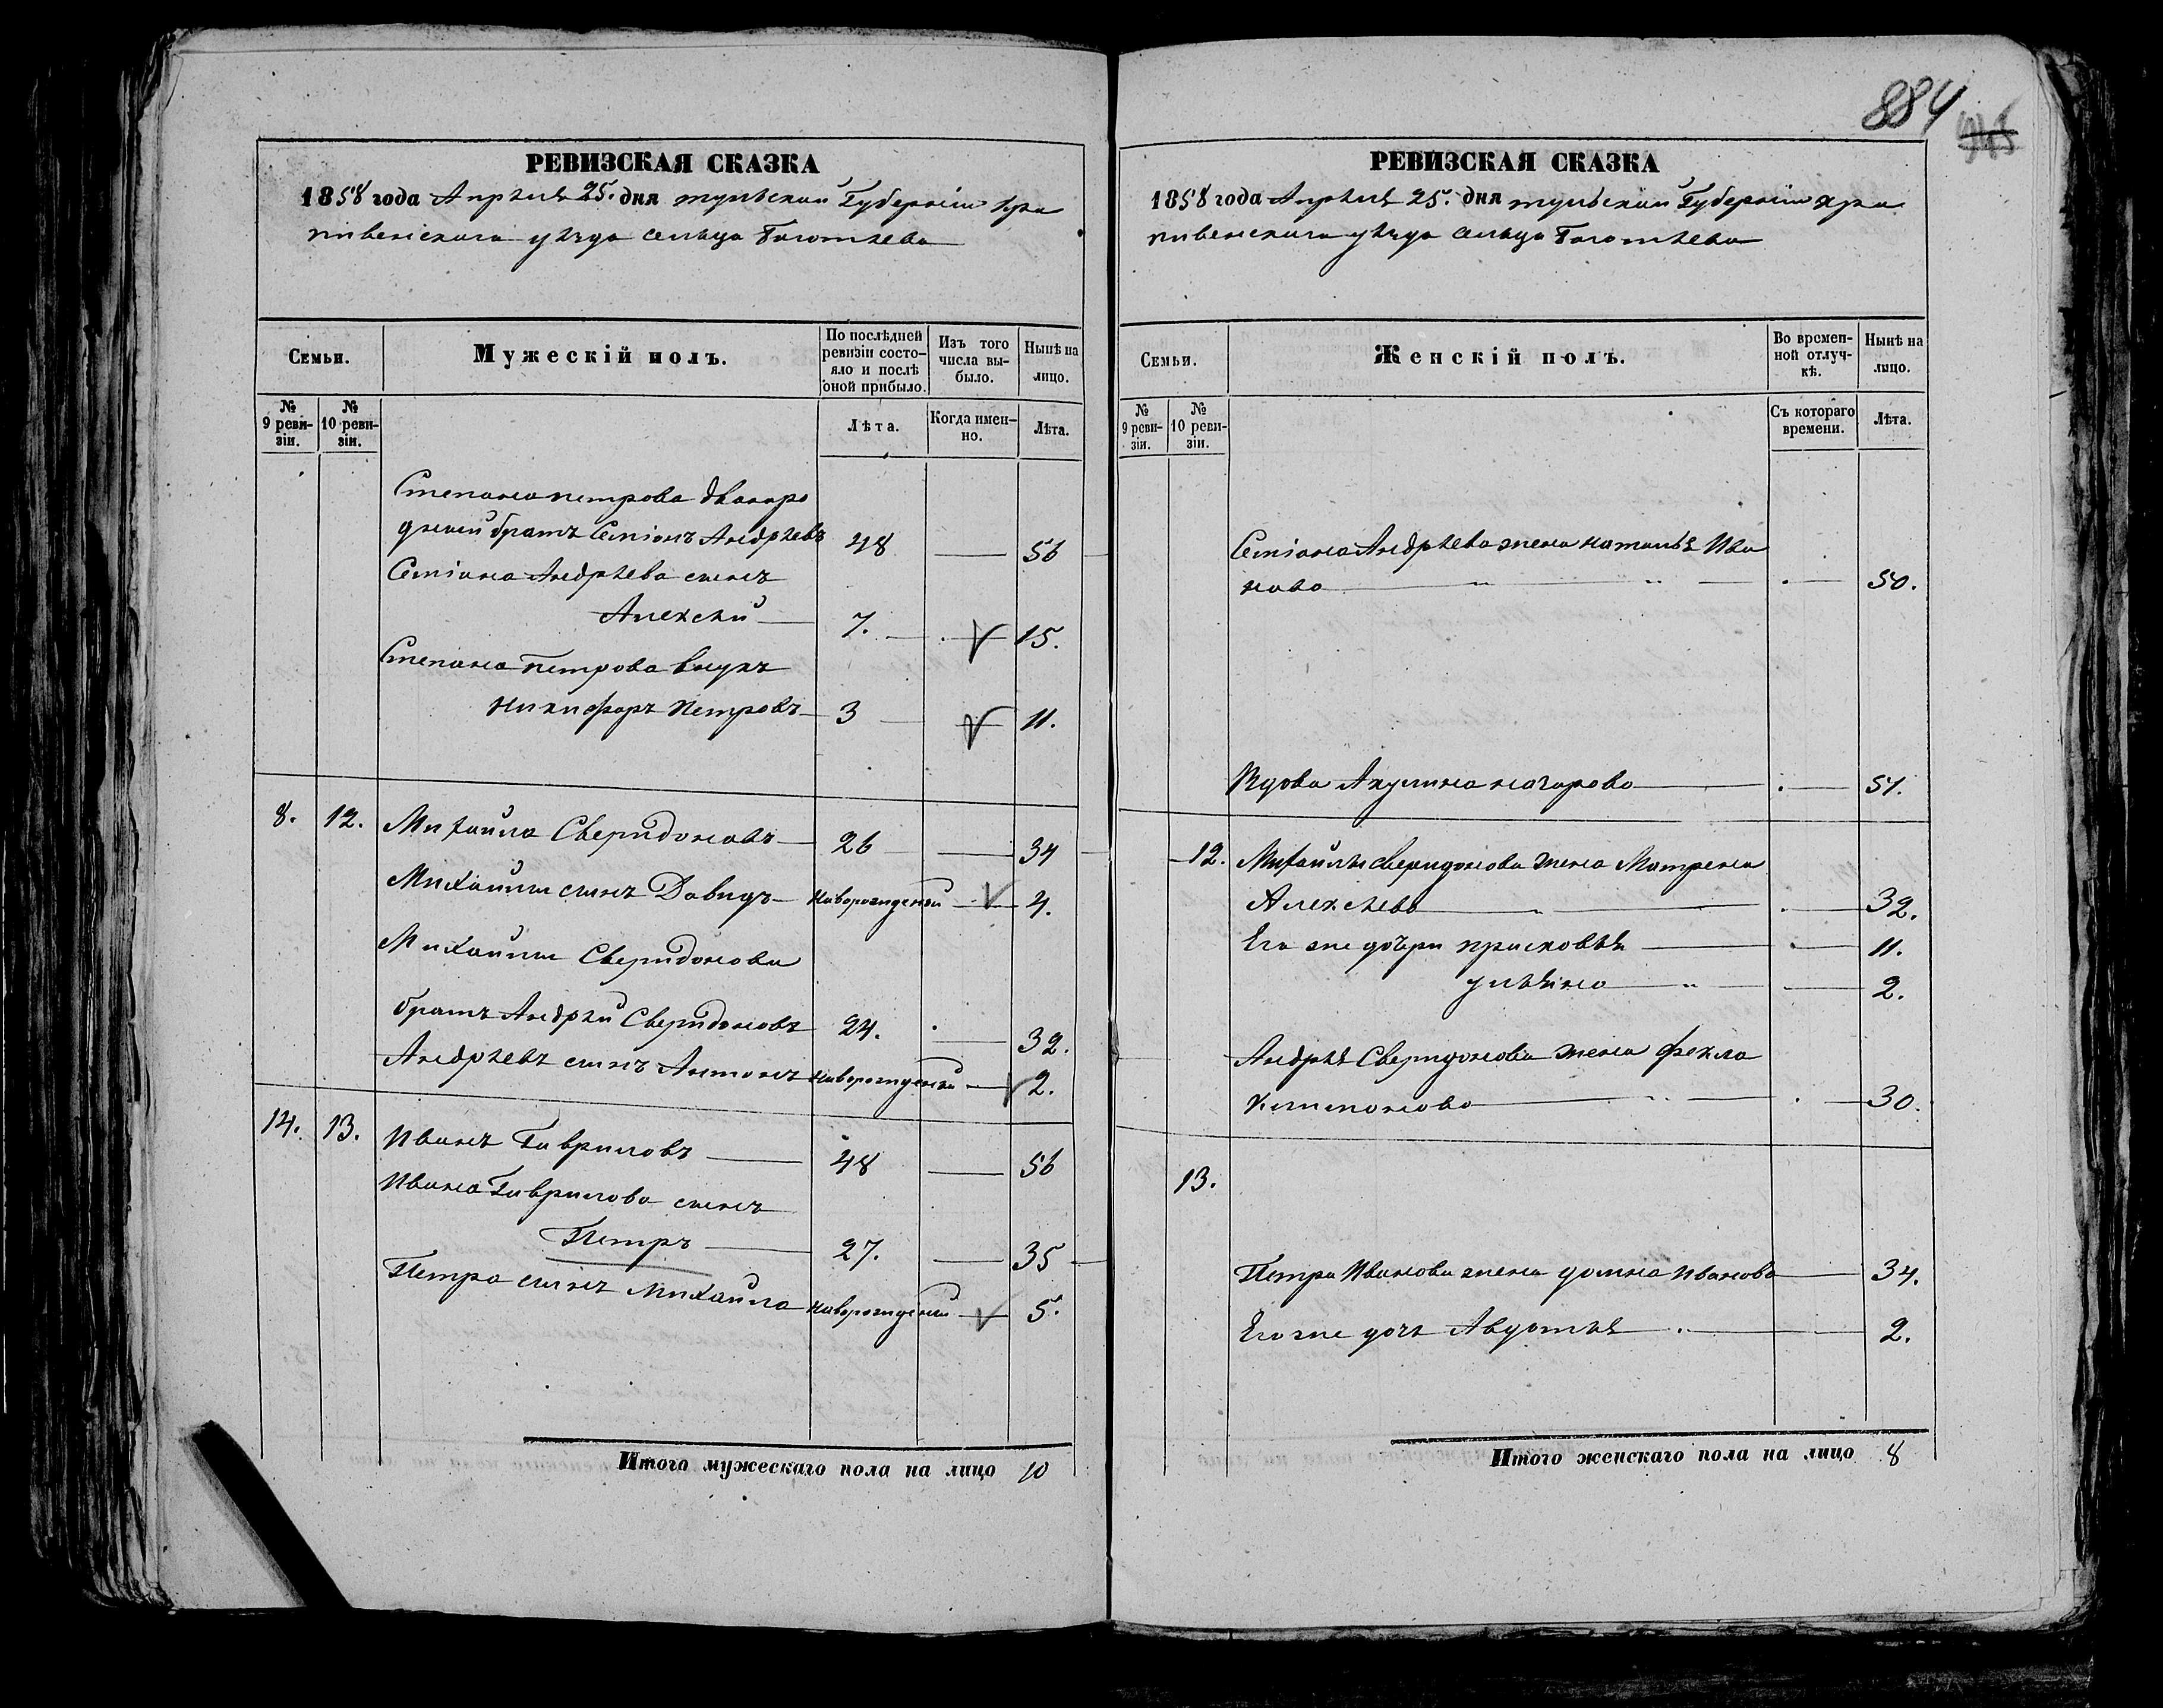 884
РЕВИЗСКАЯ СКАЗКА
1858 года Апрѣля 25. дня тульской Губерніи кра
пивенскаго уѣзда сельца
Семьи.
Мужескій полъ.
По послѣдней ревизіи состо-
яло и послѣ оной прибыло.
Изъ того числа вы-
было.
Нынѣ на лицо.
№ 9 реви-
зіи.
№ 10 реви-
зіи.
Лѣта.
Когда имен-
но.
Лѣта.
Степана петрова двоюро
дной братъ Семіонъ Андрѣевъ 48 — 56
Семіона Андрѣева сынъ
Алексѣй — 7. — 15.
Степана петрова внукъ
Никифоръ Петровъ — 3 — 11.
8. 12. Михайла Сверидоновъ — 26 — 34
Михайлы сынъ Давидъ — новорожденай — 4.
Михайлы Сверидонова
братъ Андрѣй Сверидоновъ 24. — 32.
Андрѣевъ сынъ Антонъ новорожденай — 2.
14. 13. Иванъ Гавриловъ — 48 — 56
Ивана Гаврилова сынъ
Петръ — 27. — 35
Петра сынъ Михайла новорожденай — 5.
Итого мужескаго пола на лицо 10
РЕВИЗСКАЯ СКАЗКА
1858 года Апрѣля 25. дня тульской Губерніи кра
пивенскаго уѣзда сельца
Семьи.
Женскій полъ.
Во времен-
ной отлуч-
кѣ.
Нынѣ на лицо.
№ 9 реви-
зіи.
№ 10 реви-
зіи.
Съ котораго времени.
Лѣта.
Семіона Андрѣева жена наталья Ива
нова — 50.
Вдова Акулина — 51.
12. Михайлы сверидонова жена Матрена
Алексѣева — 32.
Его же дочери прасковья — 11.
ульяна — 2.
Андрѣя Сверидонова жена фекла
— 30.
13.
Петра Иванова жена домна иванова — 34.
Его же дочь Авдотья — 2.
Итого женскаго пола на лицо 8